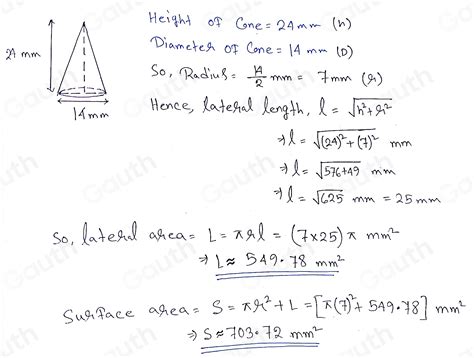 24 mm
14 mm
Height of Cone = 24 mm (h)
Diameter of Cone = 14 mm (D)
So, Radius = 14/2 mm = 7mm (r)
Hence, lateral length, l = √(h²+r²)
⇒ l = √((24)²+(7)²) mm
⇒ l = √(576+49) mm
⇒ l = √625 mm = 25 mm
So, lateral area = L = πrl = (7×25)π mm²
⇒ L ≈ 549.78 mm²
Surface area = S = πr² + L = [π(7)² + 549.78] mm²
⇒ S ≈ 703.72 mm²
Gauth